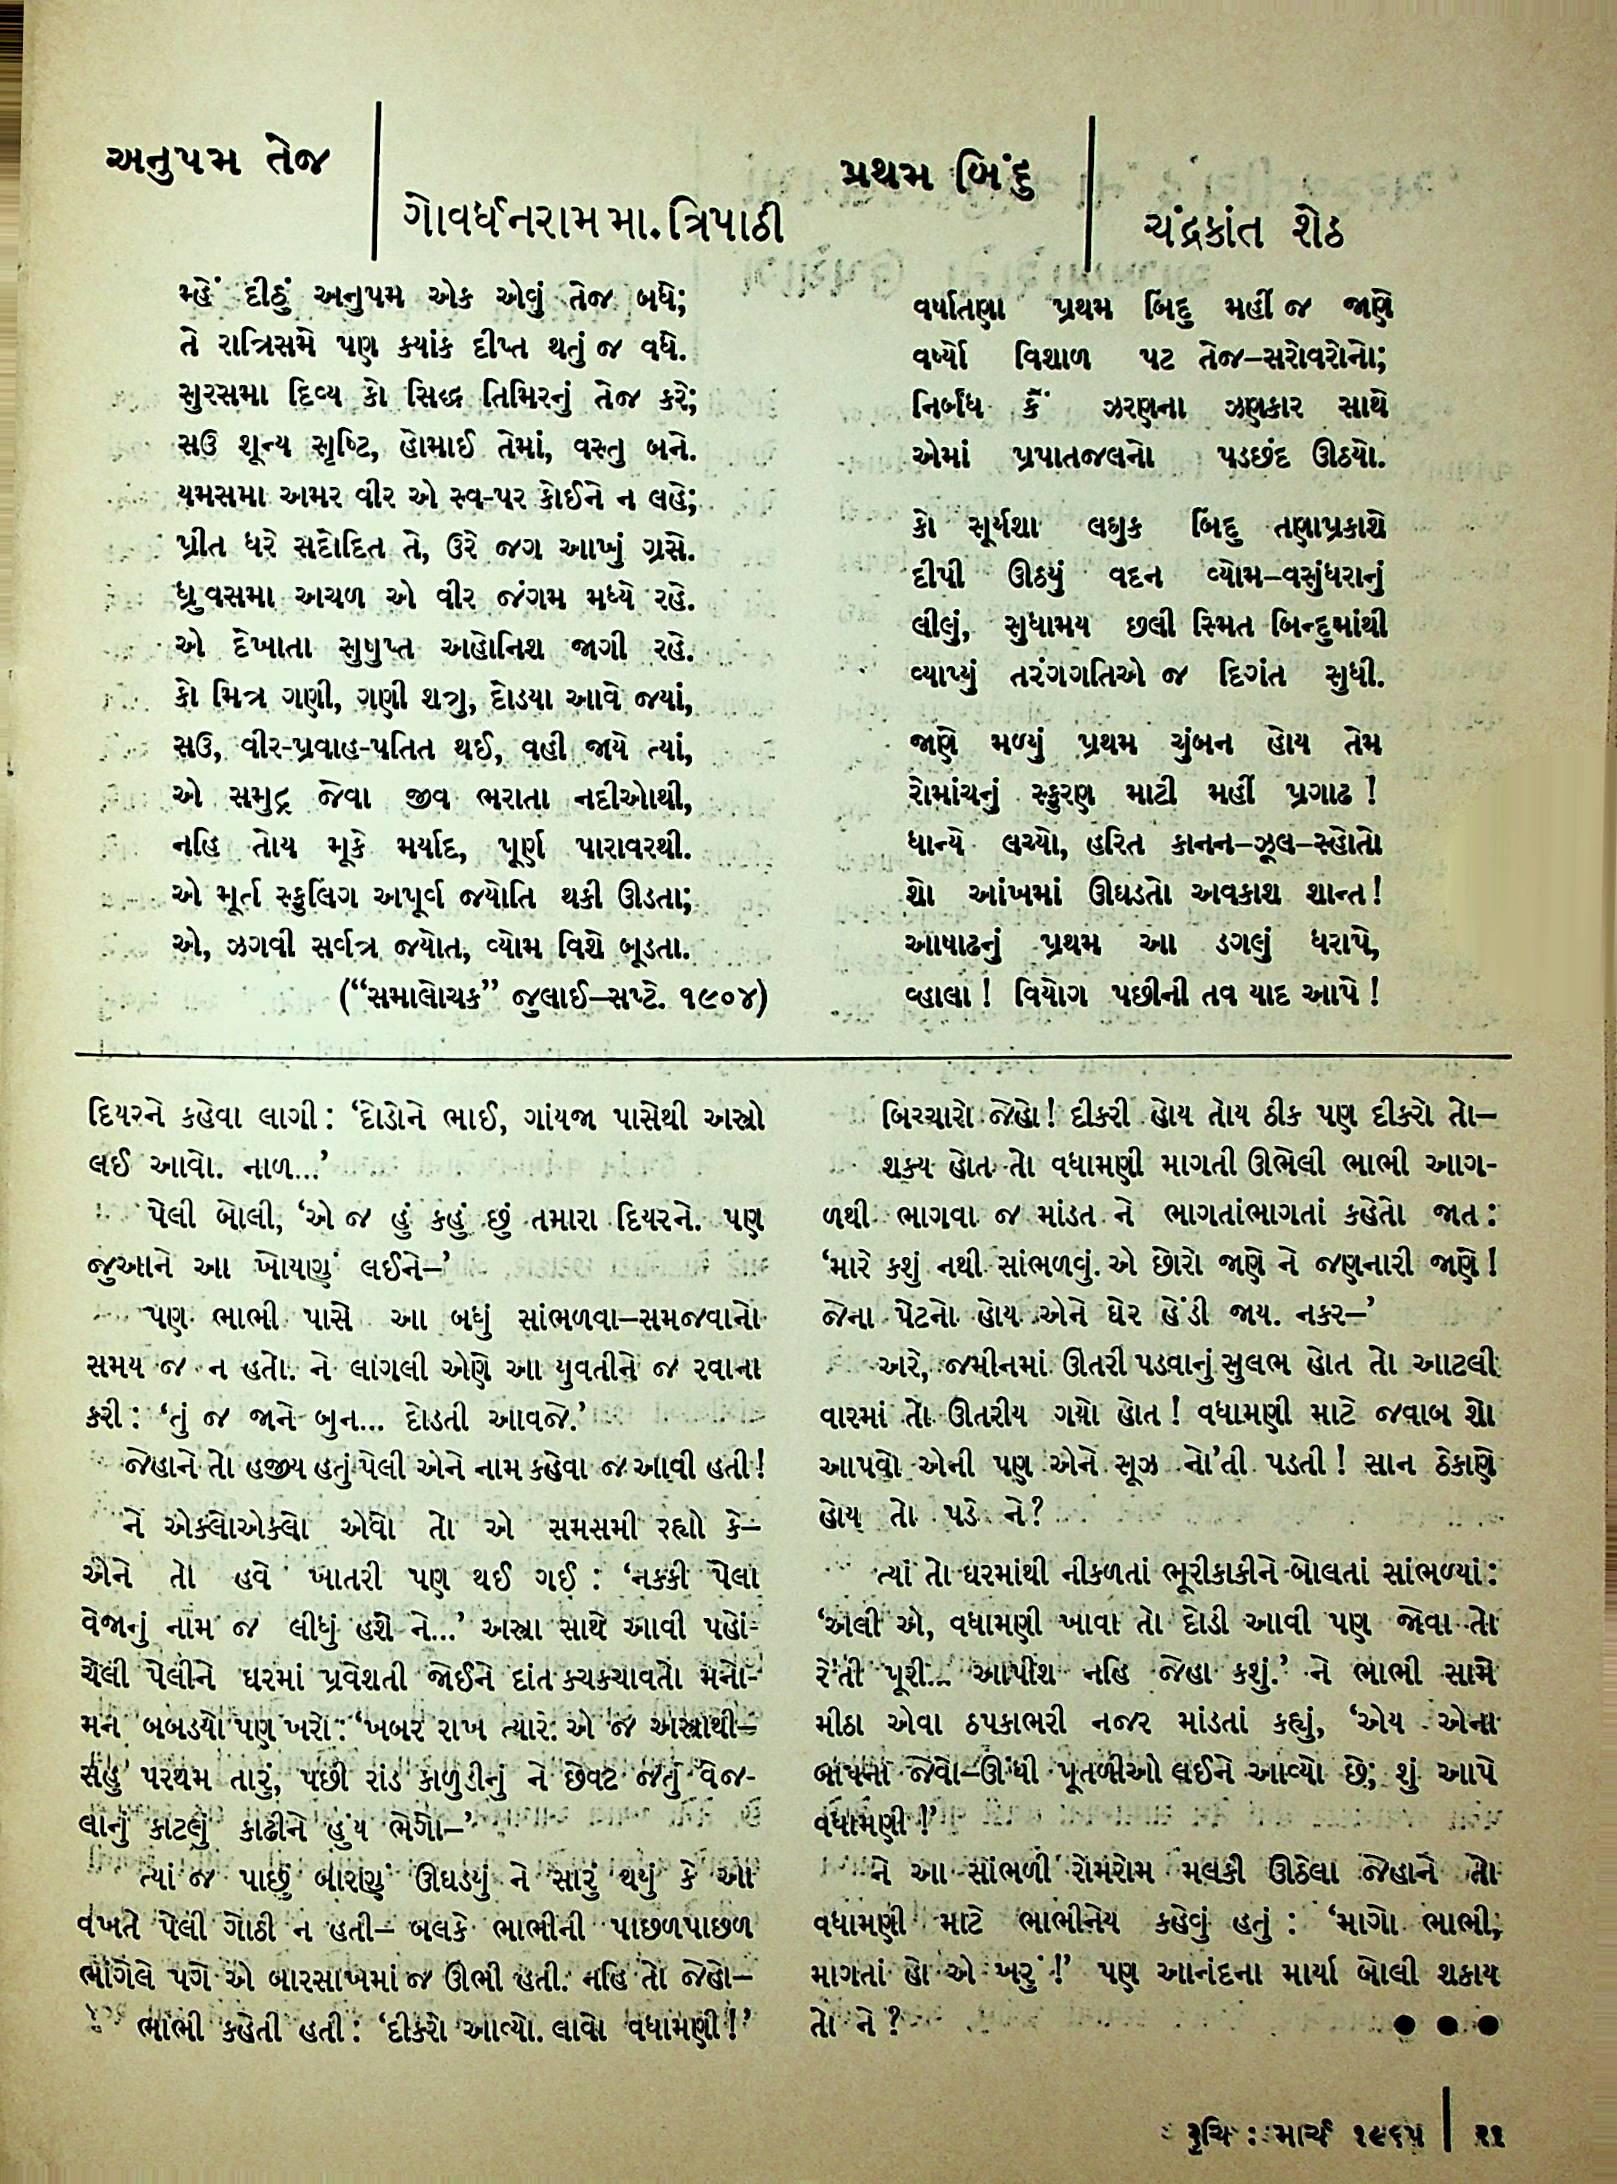 અનુપમ તેજ
ગોવર્ધનરામ મા. ત્રિપાઠી
મ્હેં દીઠું અનુપમ એક એવું તેજ બધે;
તે રાત્રિસમે પણ ક્યાંક દીપ્ત થતું જ વધે.
સુરસમા દિવ્ય કો સિદ્ધ તિમિરનું તેજ કરે;
સઉ શૂન્ય સૃષ્ટિ, હોમાઈ તેમાં, વસ્તુ બને.
યમસમા અમર વીર એ સ્વ-પર કોઈને ન લહે;
પ્રીત ધરે સદોદિત તે, ઉરે જગ આખું ગ્રસે.
ધ્રુવસમા અચળ એ વીર જંગમ મધ્યે રહે.
એ દેખાતા સુષુપ્ત અહોનિશ જાગી રહે.
કો મિત્ર ગણી, ગણી શત્રુ, દોડયા આવે જયાં,
સઉ, વીર-પ્રવાહ-પતિત થઈ, વહી જાયે ત્યાં,
એ સમુદ્ર જેવા જીવ ભરાતા નદીઓથી,
નહિ તોય મૂકે મર્યાદ, પૂર્ણ પારાવરથી.
એ મૂર્ત સ્ફુલિંગ અપૂર્વ જયોતિ થકી ઊડતા;
એ, ઝગવી સર્વત્ર જયોત, વ્યોમ વિશે બૂડતા.
(“સમાલોચક” જુલાઈ–સપ્ટે. ૧૯૦૪)
પ્રથમ બિંદુ
ચંદ્રકાંત શેઠ
વર્ષાતણા પ્રથમ બિંદુ મહીં જ જાણે
વર્ષ્યો વિશાળ પટ તેજ–સરોવરોનો;
નિર્બંધ કૈં ઝરણના ઝણકાર સાથે
એમાં પ્રપાતજલનો પડછંદ ઊઠયો.
કો સૂર્યશા લઘુક બિંદુ તણાપ્રકાશે
દીપી ઊઠયું વદન વ્યોમ–વસુંધરાનું
લીલું, સુધામય છલી સ્મિત બિન્દુમાંથી
વ્યાપ્યું તરંગગતિએ જ દિગંત સુધી.
જાણે મળ્યું પ્રથમ ચુંબન હોય તેમ
રોમાંચનું સ્ફુરણ માટી મહીં પ્રગાઢ !
ધાન્યે લચ્યો, હરિત કાનન–ઝૂલ–સ્હોતો
શો આંખમાં ઊઘડતો અવકાશ શાન્ત!
આષાઢનું પ્રથમ આ ડગલું ધરાપે,
વ્હાલા ! વિયોગ પછીની તવ યાદ આપે !
દિયરને કહેવા લાગી: ‘દોડોને ભાઈ, ગાંયજા પાસેથી અસ્ત્રો
લઈ આવો. નાળ...’
પેલી બોલી, ‘એ જ હું કહું છું તમારા દિયરને. પણ
જુઆને આ ખોયાણું લઈને–’
પણ ભાભી પાસે આ બધું સાંભળવા–સમજવાનો
સમય જ ન હતો. ને લાગલી એણે આ યુવતીને જ રવાના
કરી: ‘તું જ જાને બુન... દોડતી આવજે.’
જેહાને તો હજીય હતું પેલી એને નામ કહેવા જ આવી હતી!
ને એકલોએકલો એવો તો એ સમસમી રહ્યો કે–
એને તો હવે ખાતરી પણ થઈ ગઈ : ‘નક્કી પેલા
વેજાનું નામ જ લીધું હશે ને...’ અસ્ત્રા સાથે આવી પહોં-
ચેલી પેલીને ઘરમાં પ્રવેશતી જોઈને દાંત કચકચાવતો મનો-
મન બબડયો પણ ખરો: ‘ખબર રાખ ત્યારે. એ જ અસ્ત્રાથી–
સહુ પરથમ તારું, પછી રાંડ કાળુડીનું ને છેવટ જતું વેજ-
લાનું કાટલું કાઢીને હુંય ભેગો–’
ત્યાં જ પાછું બારાણું ઊઘડયું ને સારું થયું કે આ
વખતે પેલી ગોઠી ન હતી– બલકે ભાભીની પાછળપાછળ
ભાંગેલે પગે એ બારસાખમાં જ ઊભી હતી. નહિ તો જેહો–
ભાભી કહેતી હતી: ‘દીકરો આવ્યો. લાવો વધામણી!’
બિચ્ચારો જેહો! દીકરી હોય તોય ઠીક પણ દીકરો તો–
શક્ય હોત તો વધામણી માગતી ઊભેલી ભાભી આગ-
ળથી ભાગવા જ માંડત ને ભાગતાંભાગતાં કહેતો જાત:
‘મારે કશું નથી સાંભળવું. એ છોરો જાણે ને જણનારી જાણે!
જેના પેટનો હોય એને ઘેર હેંડી જાય. નકર–’
અરે, જમીનમાં ઊતરી પડવાનું સુલભ હોત તો આટલી
વારમાં તો ઊતરીય ગયો હોત! વધામણી માટે જવાબ શો
આપવો એની પણ એને સૂઝ નો’તી પડતી! સાન ઠેકાણે
હોય તો પડે ને?
ત્યાં તો ઘરમાંથી નીકળતાં ભૂરીકાકીને બોલતાં સાંભળ્યાં:
‘અલી એ, વધામણી ખાવા તો દોડી આવી પણ જોવા તો
રે'તી પૂરી... આપીશ નહિ જેહા કશું.’ ને ભાભી સામે
મીઠા એવા ઠપકાભરી નજર માંડતાં કહ્યું, ‘એય એના
બાપના જેવો–ઊંધી પૂતળીઓ લઈને આવ્યો છે; શું આપે
વધામણી!’
ને આ સાંભળી રોમરોમ મલકી ઊઠેલા જેહાને તો
વધામણી માટે ભાભીનેય કહેવું હતું : ‘માગો ભાભી;
માગતાં હો એ ખરું !’ પણ આનંદના માર્યા બોલી શકાય
તો ને?
રૂચિ : માર્ચ ૧૯૬૫ | ૨૧